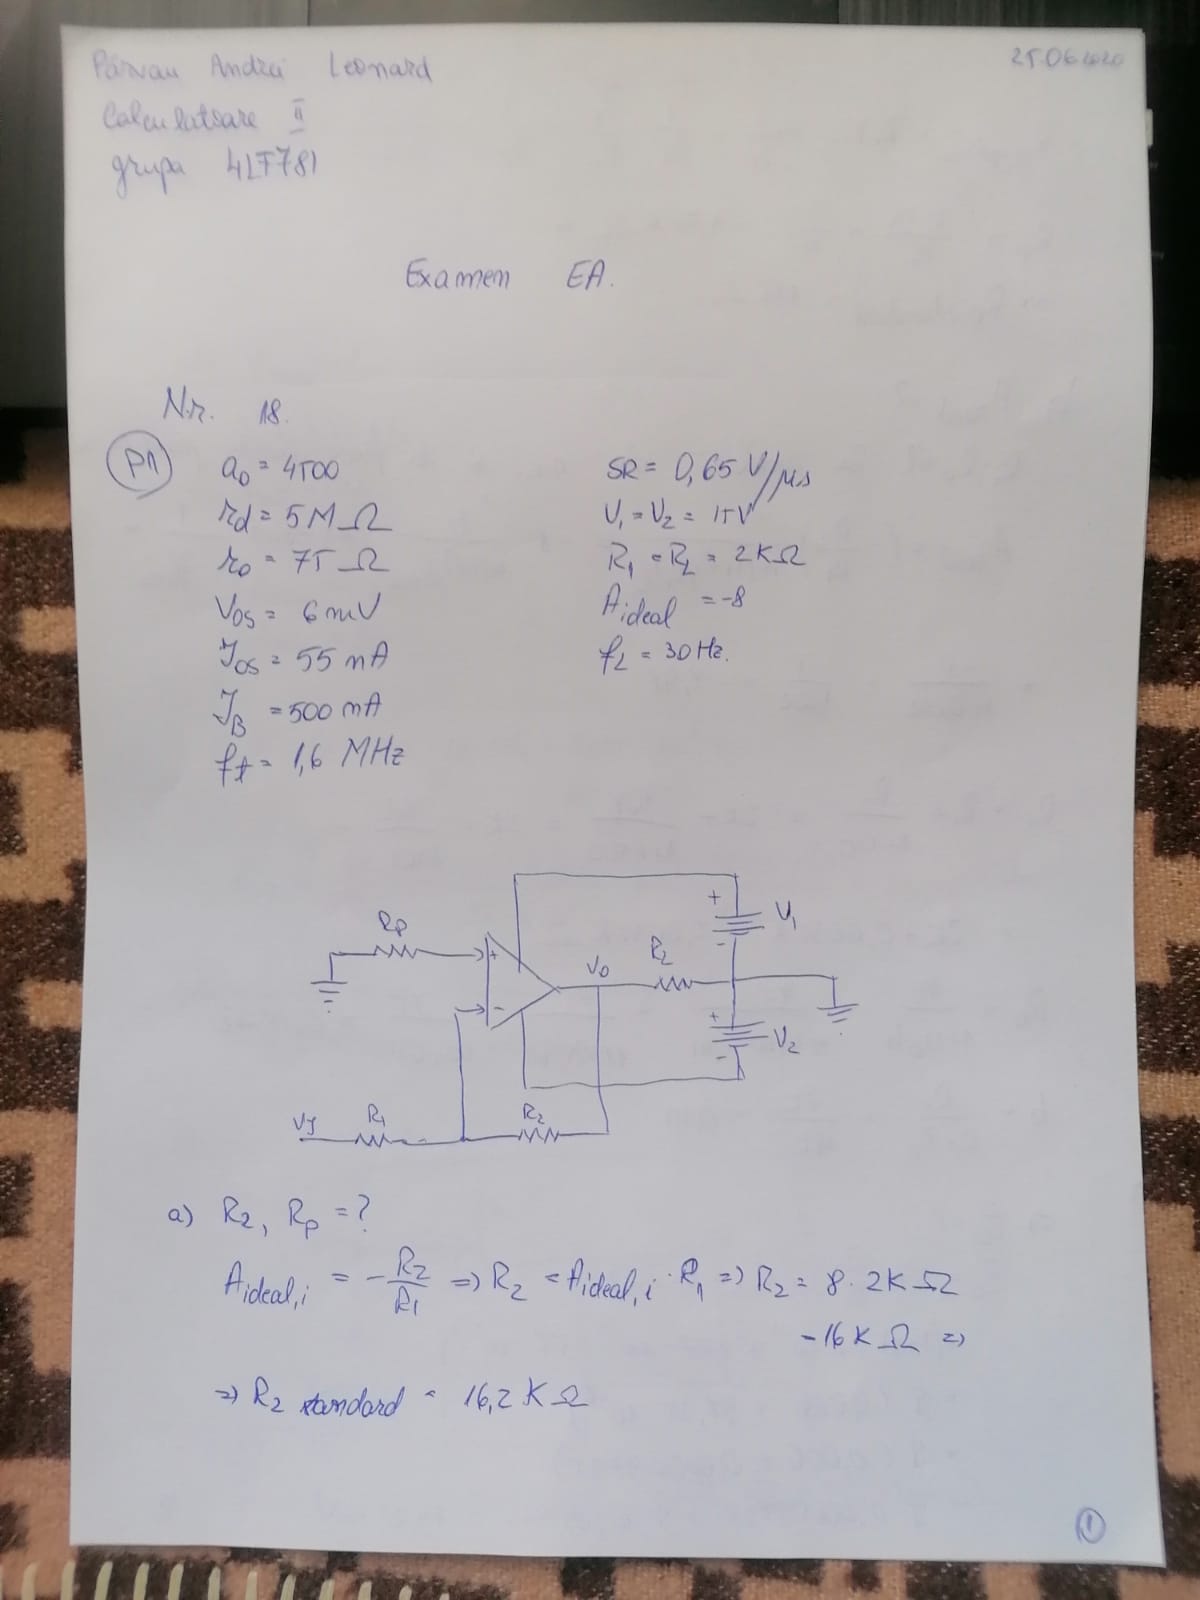 Pârvau Andrei Leonard
25.06.2020
Calculatoare II
grupa 4LF781
Examen EA.
Nr. 18.
P1
a₀ = 4500
rd = 5MΩ
r₀ = 75Ω
VOS = 6mV
IOS = 55 nA
IB = 500 nA
ft = 1,6 MHz
SR = 0,65 V/μs
V₁ = V₂ = 15V
R₁ = RL = 2KΩ
Aideal = -8
fL = 30Hz.
Rp
+
-
V₀
R₂
+
-
V₁
+
-
V₂
VI
R₁
R₂
a) R₂, Rp = ?
Aideal,i = - R₂/R₁ => R₂ = Aideal,i · R₁ => R₂ = 8·2KΩ
= 16KΩ =>
=> R₂ standard = 16,2KΩ
1